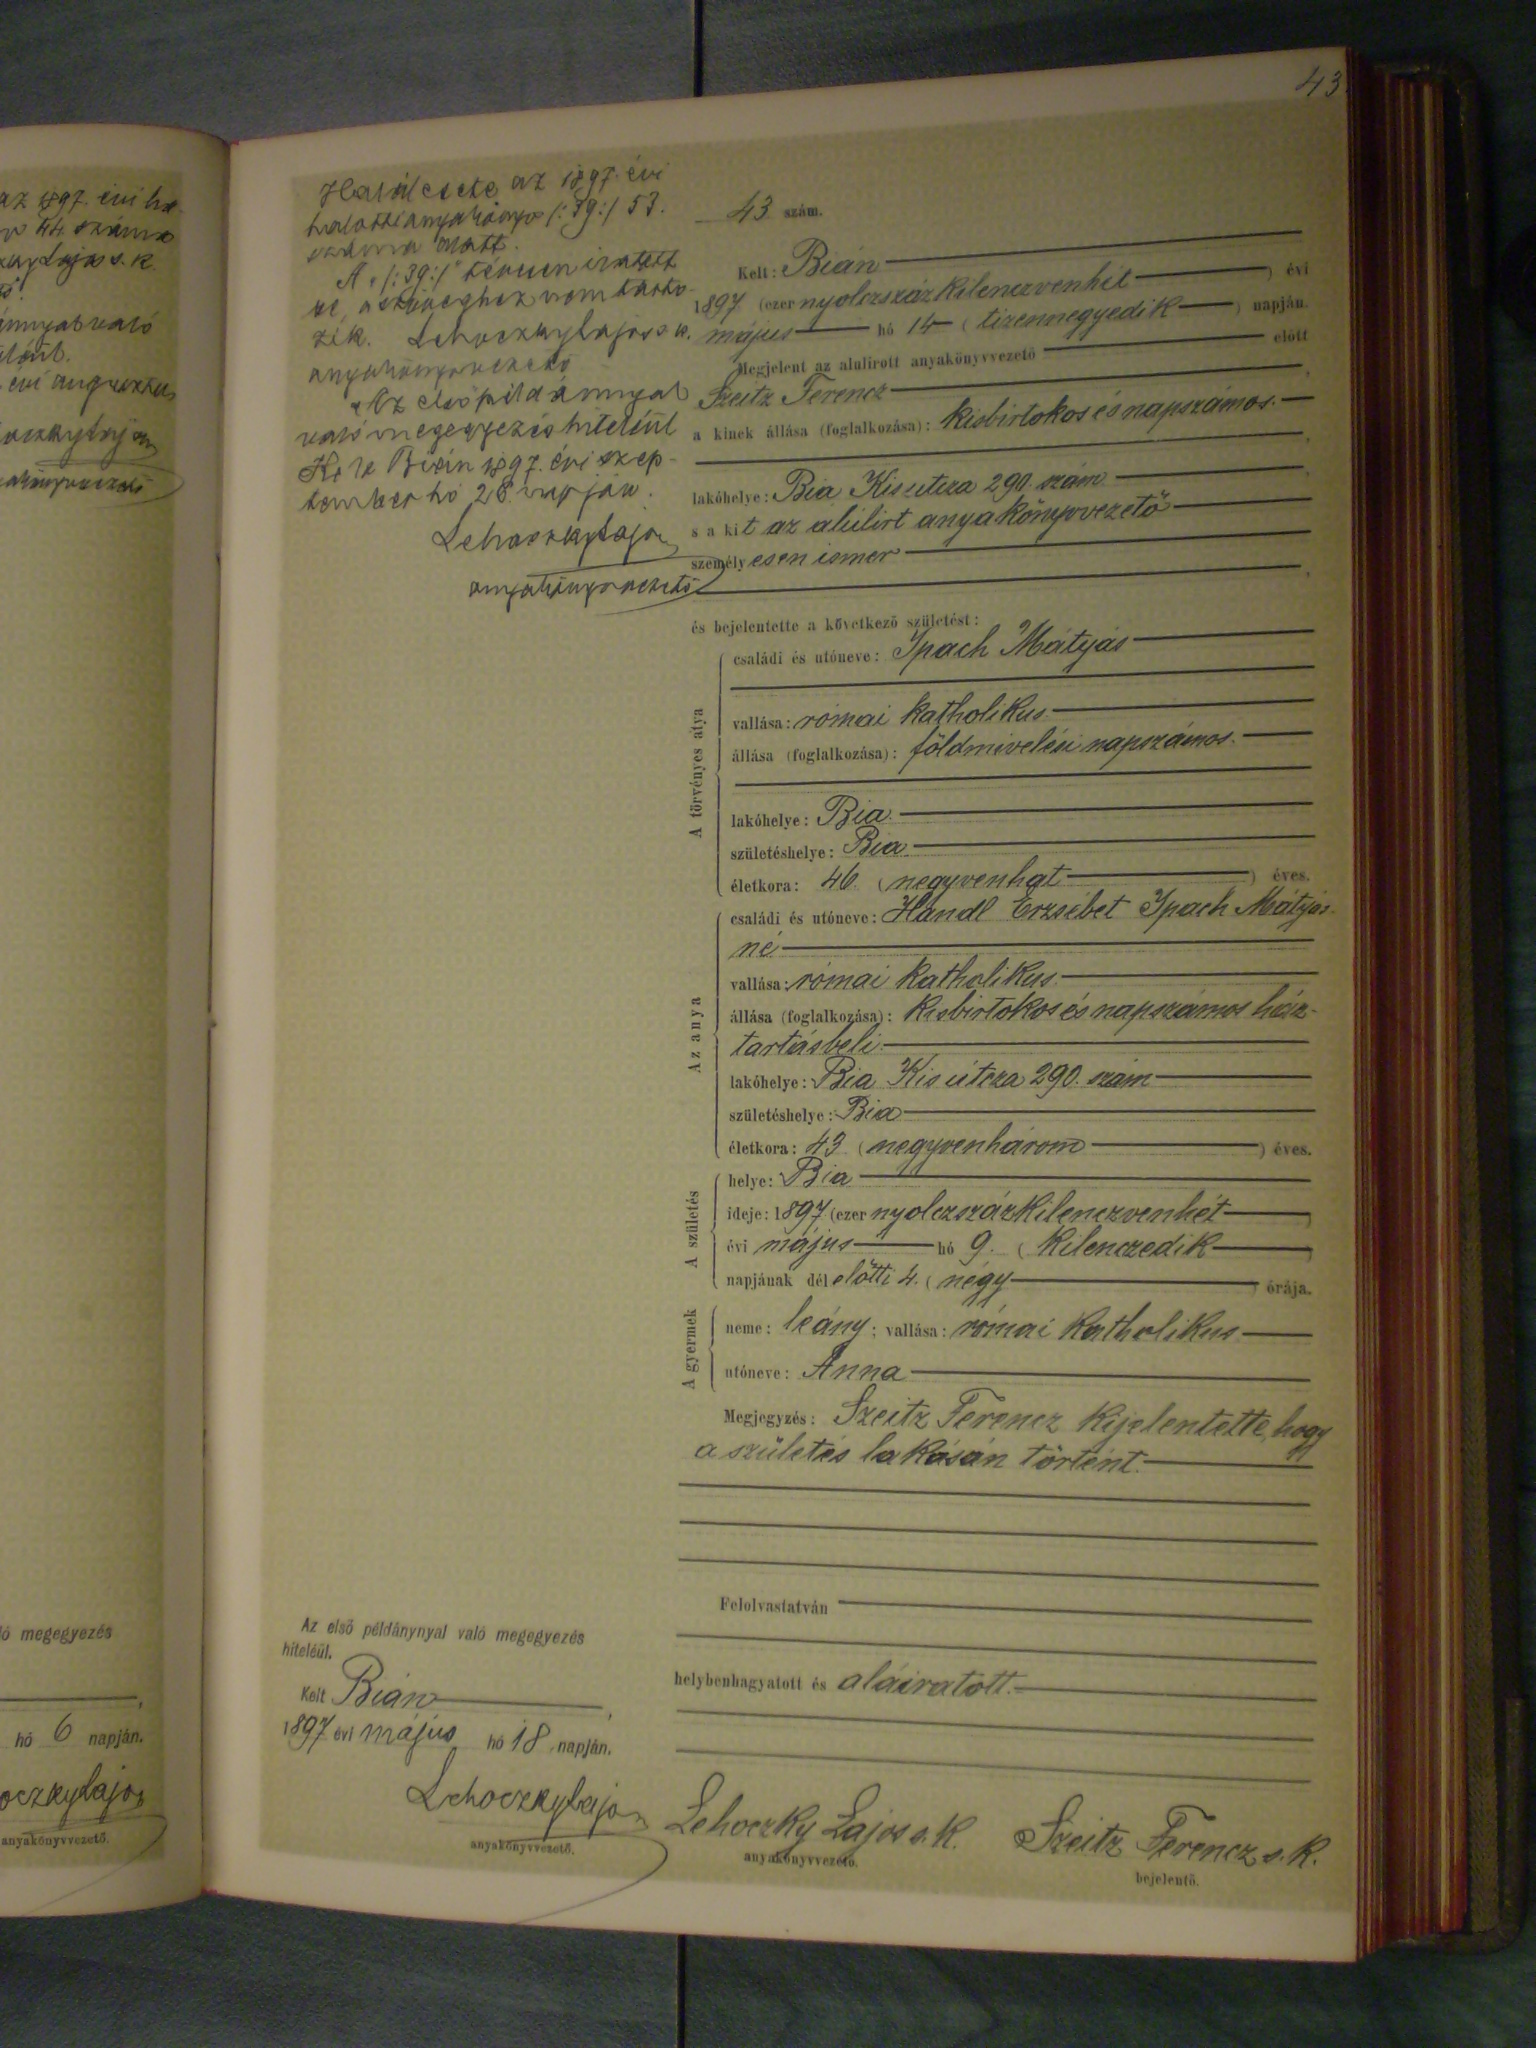 az 1897. évi ha-
44. számа
Lajos s. k.
évi augusztus
ló megegyezés
hó 6 napján.
anyakönyvvezető.
43
Haláleset az 1897. évi
halotti anyakönyv /:39:/ 53.
száma alatt.
A „/:39:/" tévesen iratott
be, a szöveghez nem tarto-
zik. Lehoczky Lajos s. k.
anyakönyvvezető
Az első példánnyal
való megegyezés hiteléül
Kelt Bián 1897. évi szep-
tember hó 28. napján.
Lehoczky Lajos
anyakönyvvezető
43 szám.
Kelt: Bián
1897 (ezer nyolczszáz kilenczvenhét) évi
május hó 14 (tizennegyedik) napján.
Megjelent az alulirott anyakönyvvezető előtt
Szeitz Ferencz,
a kinek állása (foglalkozása): kisbirtokos és napszámos.
lakóhelye: Bia Kis utcza 290. szám,
s a kit az alulirt anyakönyvvezető
személyesen ismer,
és bejelentette a következő születést:
A törvényes atya
családi és utóneve: Ipach Mátyás
vallása: római katholikus
állása (foglalkozása): földmivelési napszámos.
lakóhelye: Bia.
születéshelye: Bia.
életkora: 46. (negyvenhat) éves.
Az anya
családi és utóneve: Handl Erzsébet Ipach Mátyás-
né
vallása: római katholikus.
állása (foglalkozása): kisbirtokos és napszámos ház-
tartásbeli.
lakóhelye: Bia Kis útcza 290. szám
születéshelye: Bia
életkora: 43 (negyvenhárom) éves.
A születés
helye: Bia
ideje: 1897 (ezer nyolczszáz kilenczvenhét)
évi május hó 9. (kilenczedik)
napjának dél előtti 4. (négy) órája.
A gyermek
neme: leány; vallása: római katholikus
utóneve: Anna
Megjegyzés: Szeitz Ferencz kijelentette, hogy
a születés lakásán történt.
Felolvastatván
helybenhagyatott és aláiratott.
Az első példánynyal való megegyezés
hiteléül.
Kelt Bián,
1897 évi május hó 18. napján.
Lehoczky Lajos
anyakönyvvezető.
Lehoczky Lajos s. k.
anyakönyvvezető.
Szeitz Ferencz s. k.
bejelentő.